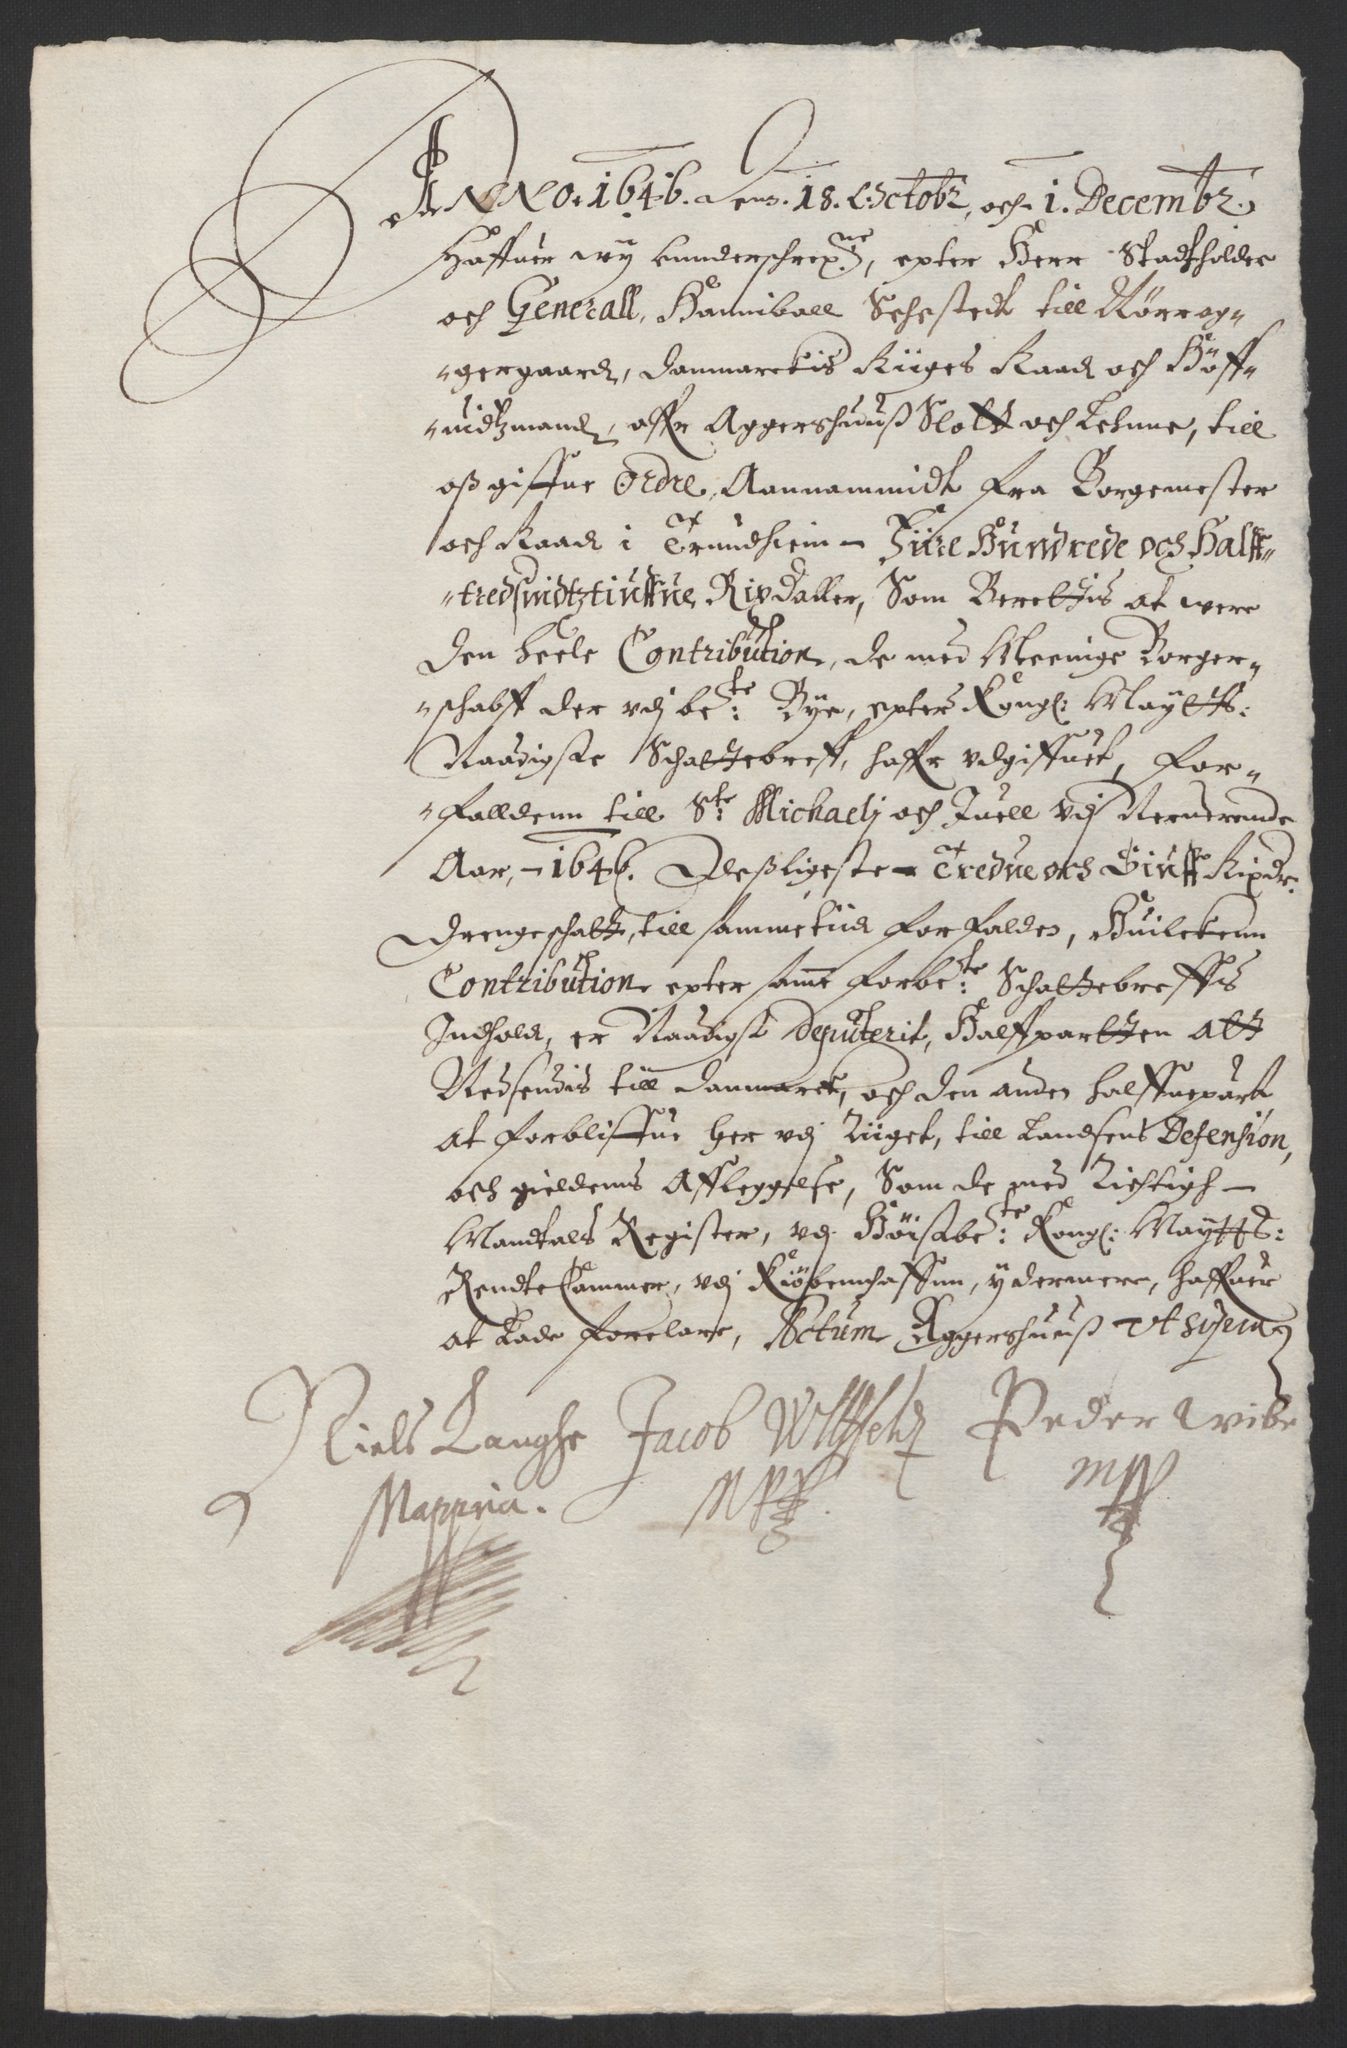 ANNO. 1646. den. 18. Octobr, och 1. Decembr.
Haffuer wy vnderschrepne, epter Herr Stadtholder
och Generall, Hanniball Sehestedt till Nörrag„
„gergaard, Danmarckis Riiges Raad och Höff„
„uidtzmand, offr Aggershuuß Slott och Lehnne, till
oß giffne Ordre, Aannammidt fra Borgemester
och Raad i Trundhiem - Fiire Hundrede och Halff„
„tredsindtztiuffue Rixdaller, Som Berettis at were
den heele Contribution, de med Meenige Borger„
„schabff der vdj bete: Bye, epter Kongl: Maytts:
Naadigste Schattebreff, haffr vdgiffuet, For„
„falldenn till Ste: Michaelj och Juell vdj Neruerende
Aar, - 1646. Deßligeste - Tredue och Siuff Rixdr:
Drengeschatt, till sammetiid forfalden, Huilckenn
Contribution epter samme forbete: Schattebreffis
Indhold, er Naadigst deputerit, Halffpartten att
Nedsendis till Danmarck, och den anden halffuepart
at forbliffue her vdj Riiget, till Landsens Defension,
och gieldens Affleggelse, Som de med Richtigh -
Mandtals Register, vdj Höistbete: Kongl: Maytts:
RendteCammer, vdj Kiöbenhaffnn, ydermere, haffuer
at Lade forclare, Actum Aggershuuß Vt supra
Niels Langhe Jacob Wllfeldt Peder Wibe
Mappria. Mpp. mpp